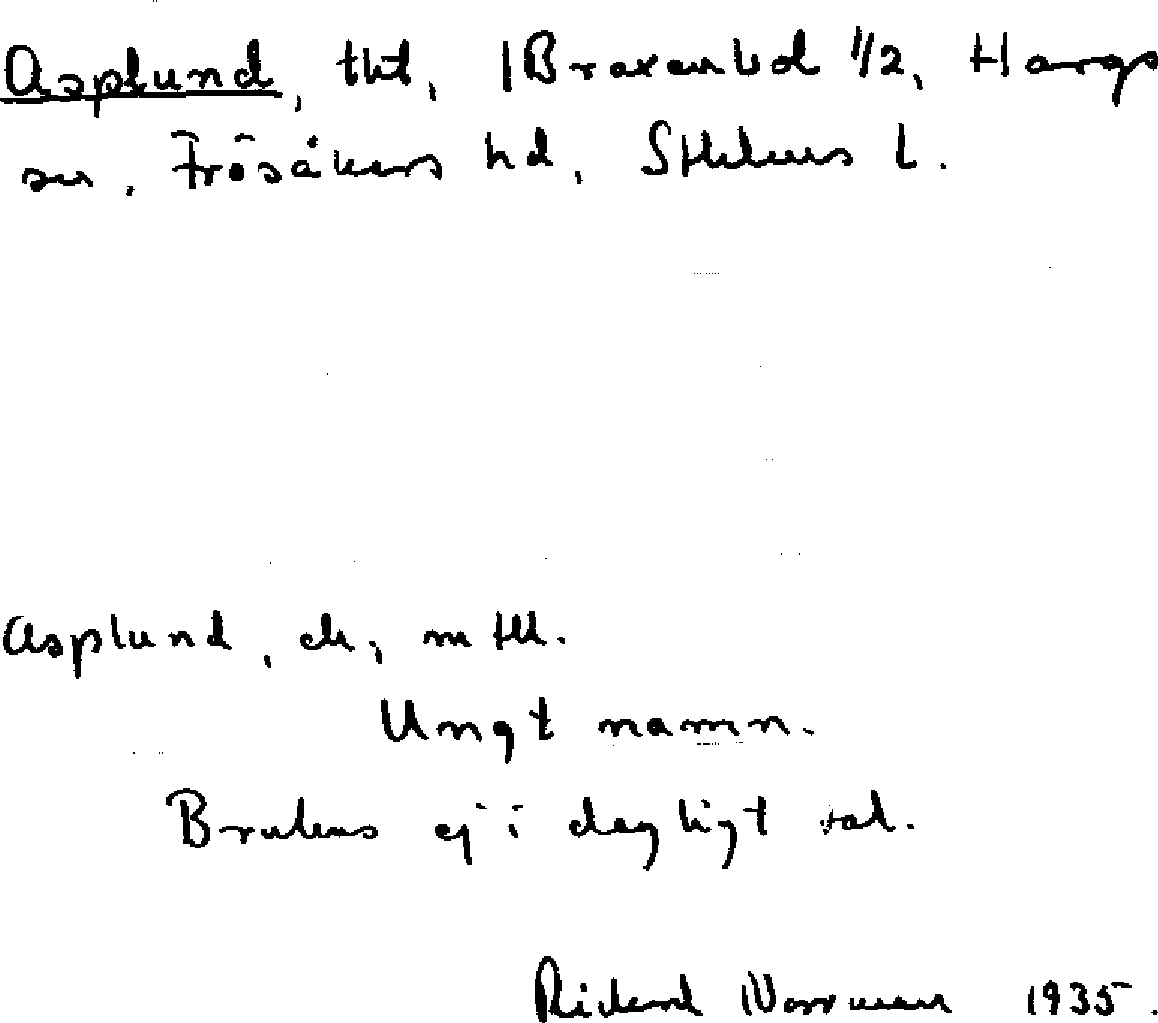 Asplund, tht, Braxenbol 1/2, Hargs
sn, Frösåkers hd, Sthlms l.
Asplund, ek, m fl.
Ungt namn.
Brukas ej i dagligt tal.
Rickard Norrman 1935.